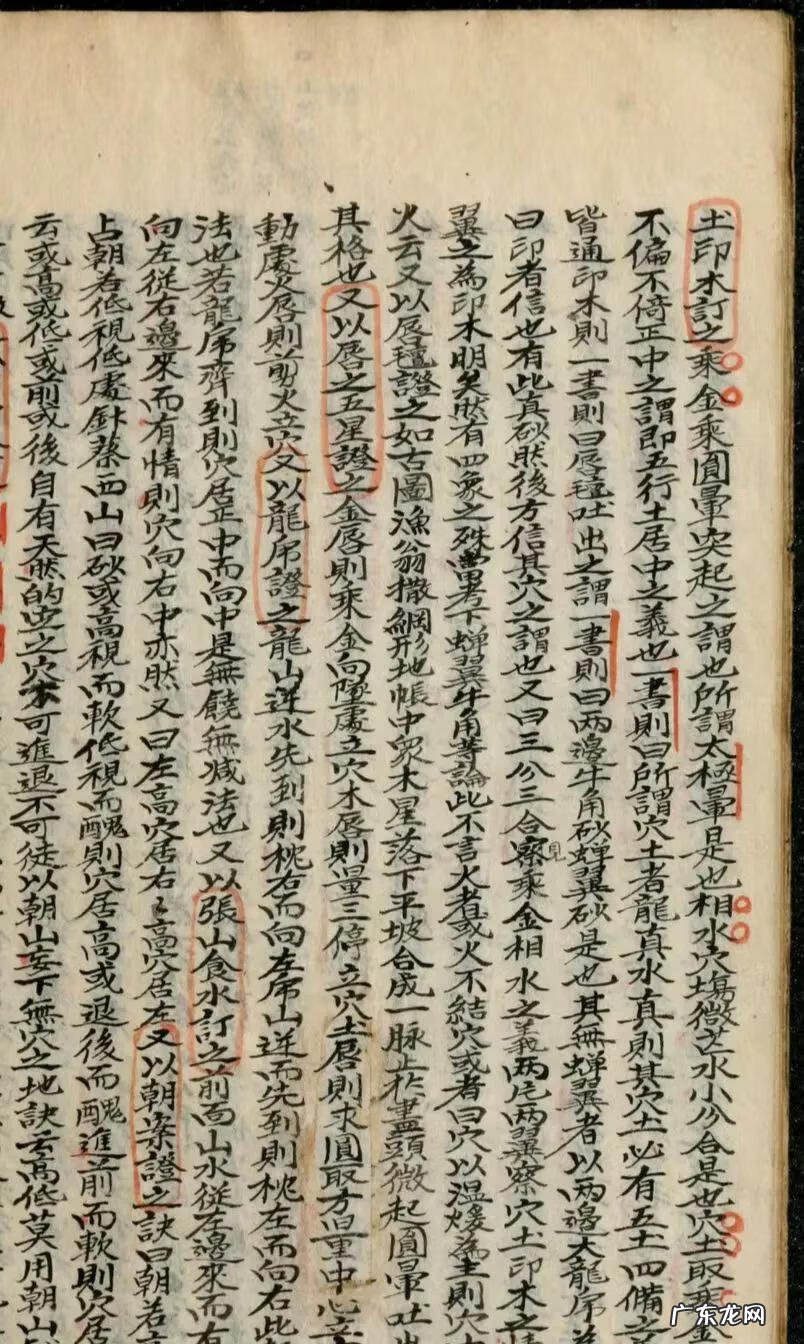 土印木訂之乘金乘圓暈突起之謂也所謂太極暈是也相水穴塲微茫水小分合是也穴土取乘金
不偏不倚正中之謂即五行土居中之義也一書則曰所謂穴土者龍真水真則其穴土必有五土四備之
皆通印木則一書則曰唇氊吐出之謂一書則曰兩邊牛角砂蟬翼砂是也其無蟬翼者以兩邊大龍虎為
曰印者信也有此真砂然後方信其穴之謂也又曰三分三合察見乘金相水之義兩片兩翼察穴土印木之情
翼之為印木明矣然有四象之殊當考下蟬翼牛角等論此不言火者或火不結穴或者曰穴以温煖為主則穴土
火云又以唇氊證之如古圖漁翁撒綱形地帳中眾木星落下平坡合成一脉止扵盡頭微起圓暈吐出
其格也又以唇之五星證之金唇則乘金向墜處立穴木唇則量三停立穴土唇則求圓取方㫖重中心立
動處火唇則剪火立穴又以龍虎證之龍山逆水先到則枕右而向左虎山逆而先到則枕左而向右此
法也若龍虎齊到則穴居正中而向中是無饒無减法也又以張山食水訂之前面山水從左邊來而有
向左從右邊來而有情則穴向右中亦然又曰左高穴居右〻高穴居左又以朝案證之訣曰朝若高
占朝若低視低處針蔡西山曰砂或高視而軟低視而醜則穴居高或退後而醜進前而軟則穴居
云或高或低或前或後自有天然的定之穴不可進退不可徒以朝山妄下無穴之地訣云高低莫用朝山
广东龙网